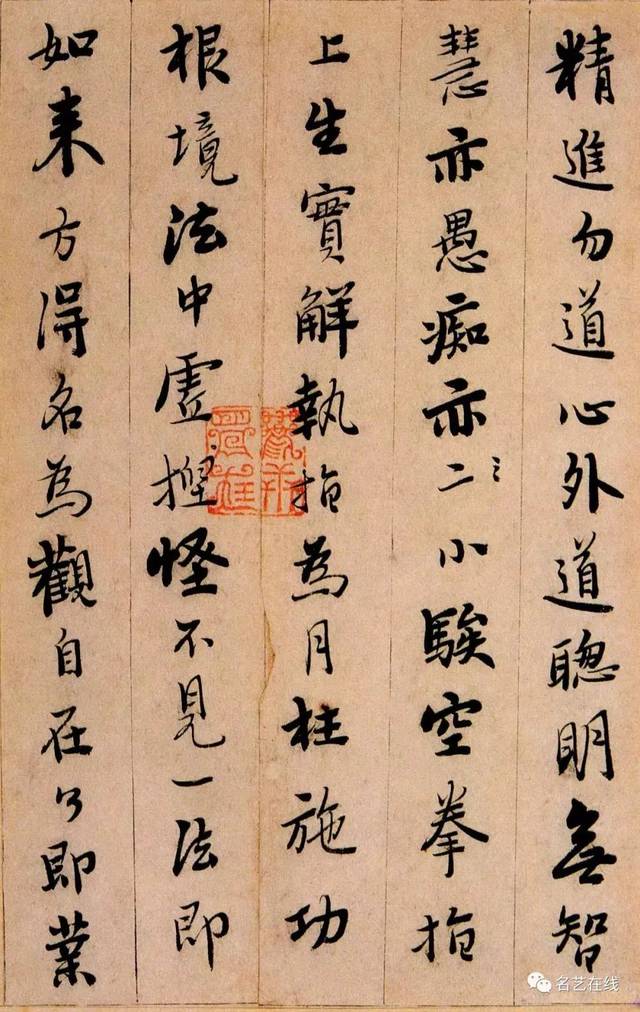 精進勿道心外道聦明無智
慧亦愚痴亦二小騃空拳指
上生實解執指為月枉施功
根境法中虛揑怪不見一法即
如来方得名為觀自在了即業
名艺在线